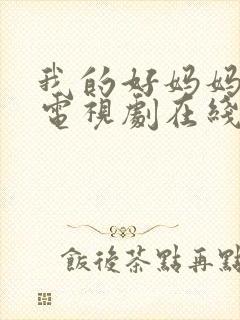 我的好妈妈
電視劇在綫
飯後茶點再點